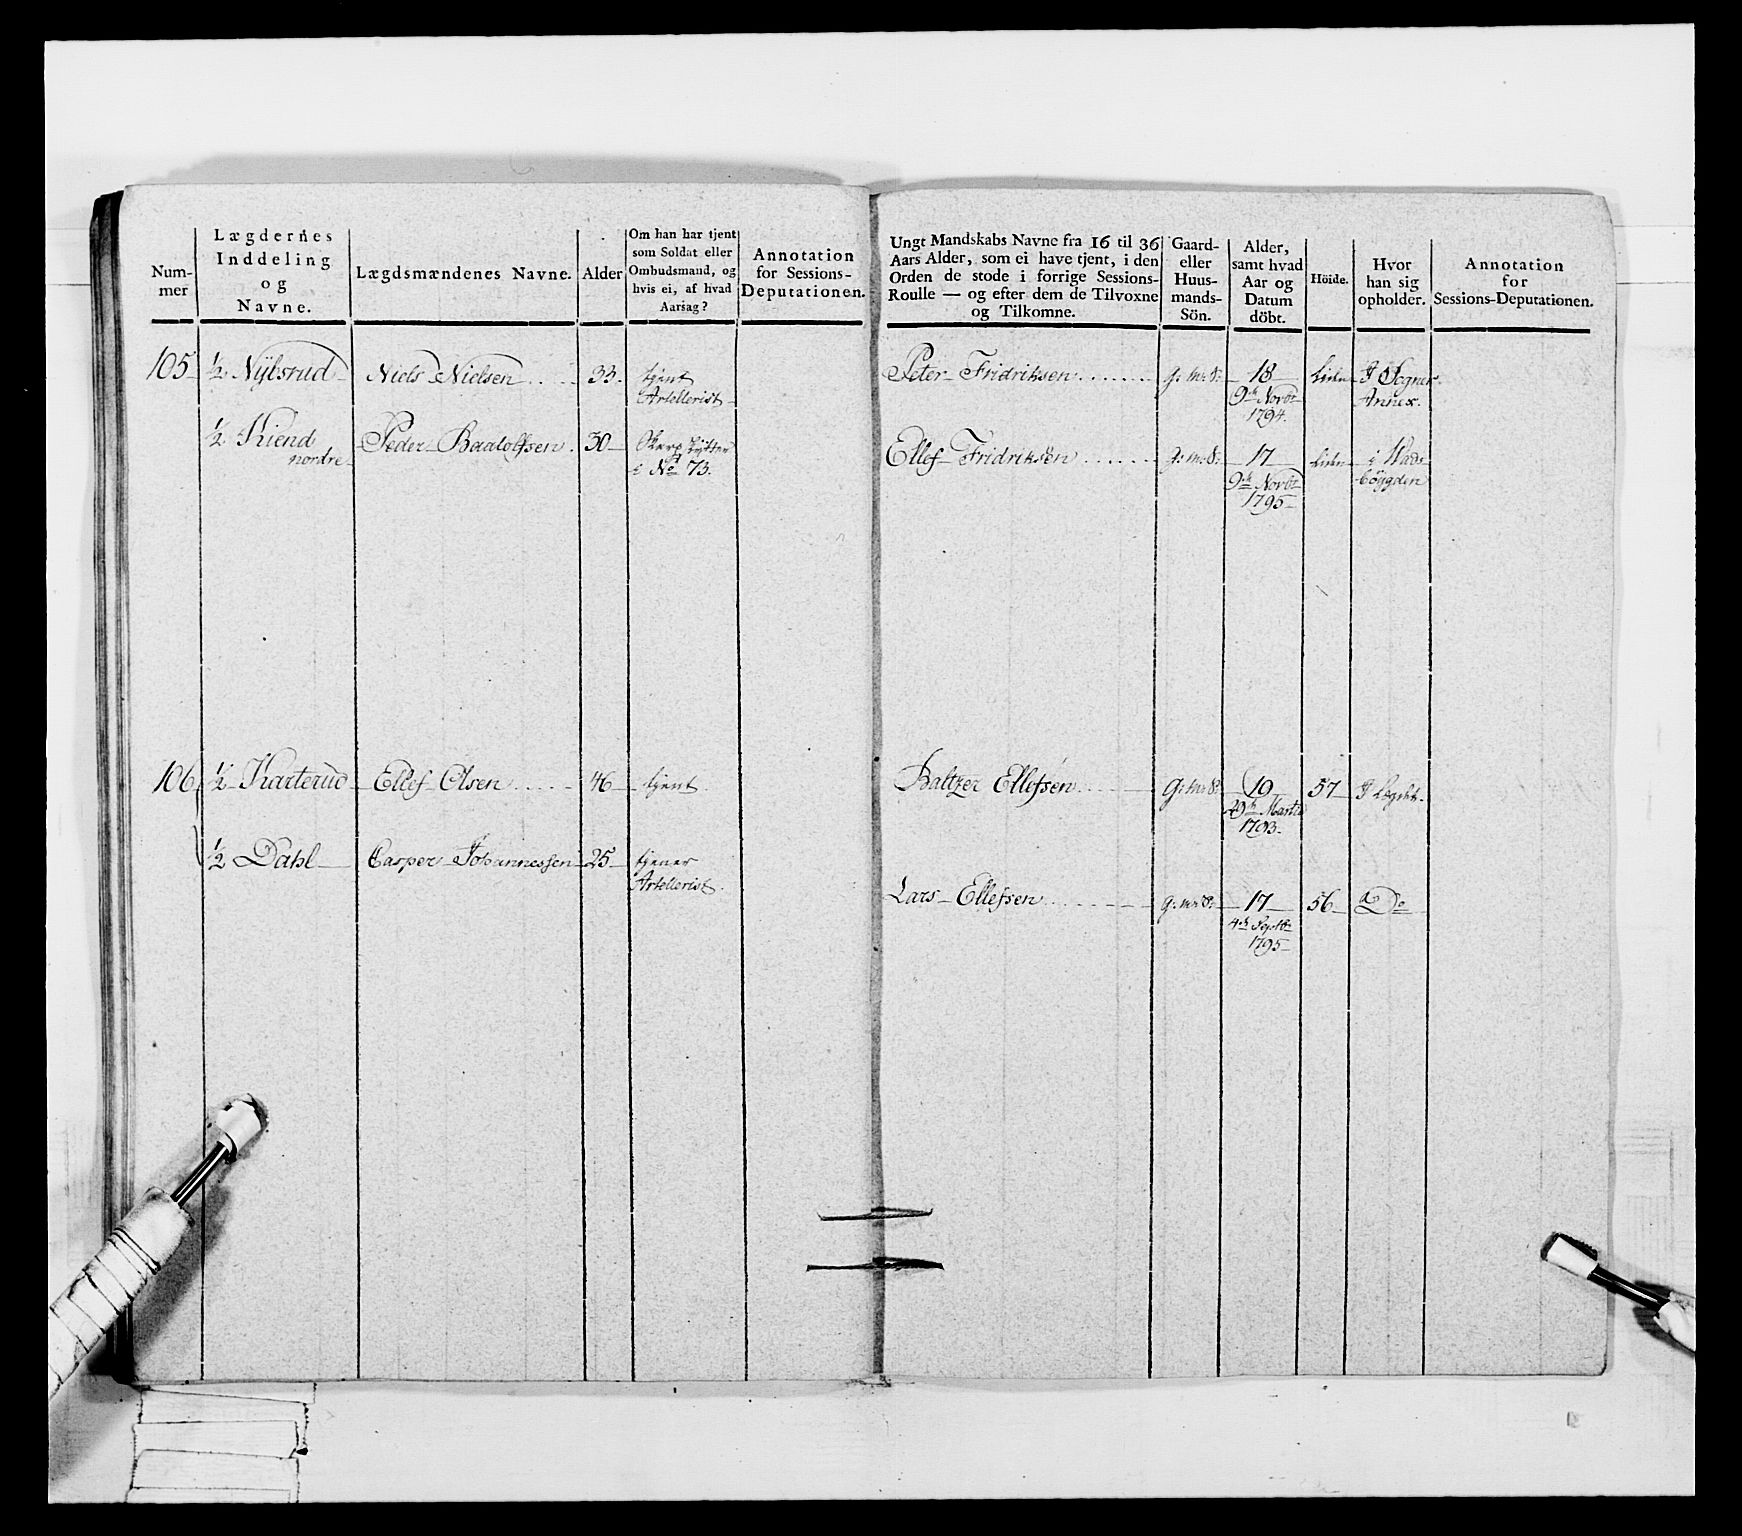 Num-
mer
Lægdernes
Inddeling
og
Navne.
Lægdsmændenes Navne.
Alder
Om han har tjent
som Soldat eller
Ombudsmand, og
hvis ei, af hvad
Aarsag?
Annotation
for Sessions-
Deputationen.
105 ½ Nÿlsrud Niels Nielsen 33. tjent
Artellerist
½ Kiend Peder Baalolfsen 30
nordre i No 73.
106 ½ Karterud Ellef Olsen 46 tjent
½ Dahl Casper Johannessen 25 tjener
Artellerist.
Ungt Mandskabs Navne fra 16 til 36
Aars Alder, som ei have tjent, i den
Orden de stode i forrige Sessions-
Roulle — og efter dem de Tilvoxne
og Tilkomne.
Gaard-
eller
Huus-
mands-
Sön.
Alder,
samt hvad
Aar og
Datum
döbt.
Höide.
Hvor
han sig
opholder.
Annotation
for
Sessions-Deputationen.
Peter Fridriksen g: m: S: 18 Liden I Sogner
9de Novbr Annex.
1794.
Ellef Fridriksen g: m: S: 17 Liden i Hads
9de Novbr böygden
1795
Baltzer Ellefsen g: m: S: 19 57 I Lægdet.
29de Martii
1793.
Lars Ellefsen g: m: S: 17 56 Do
4de Septbr
1795